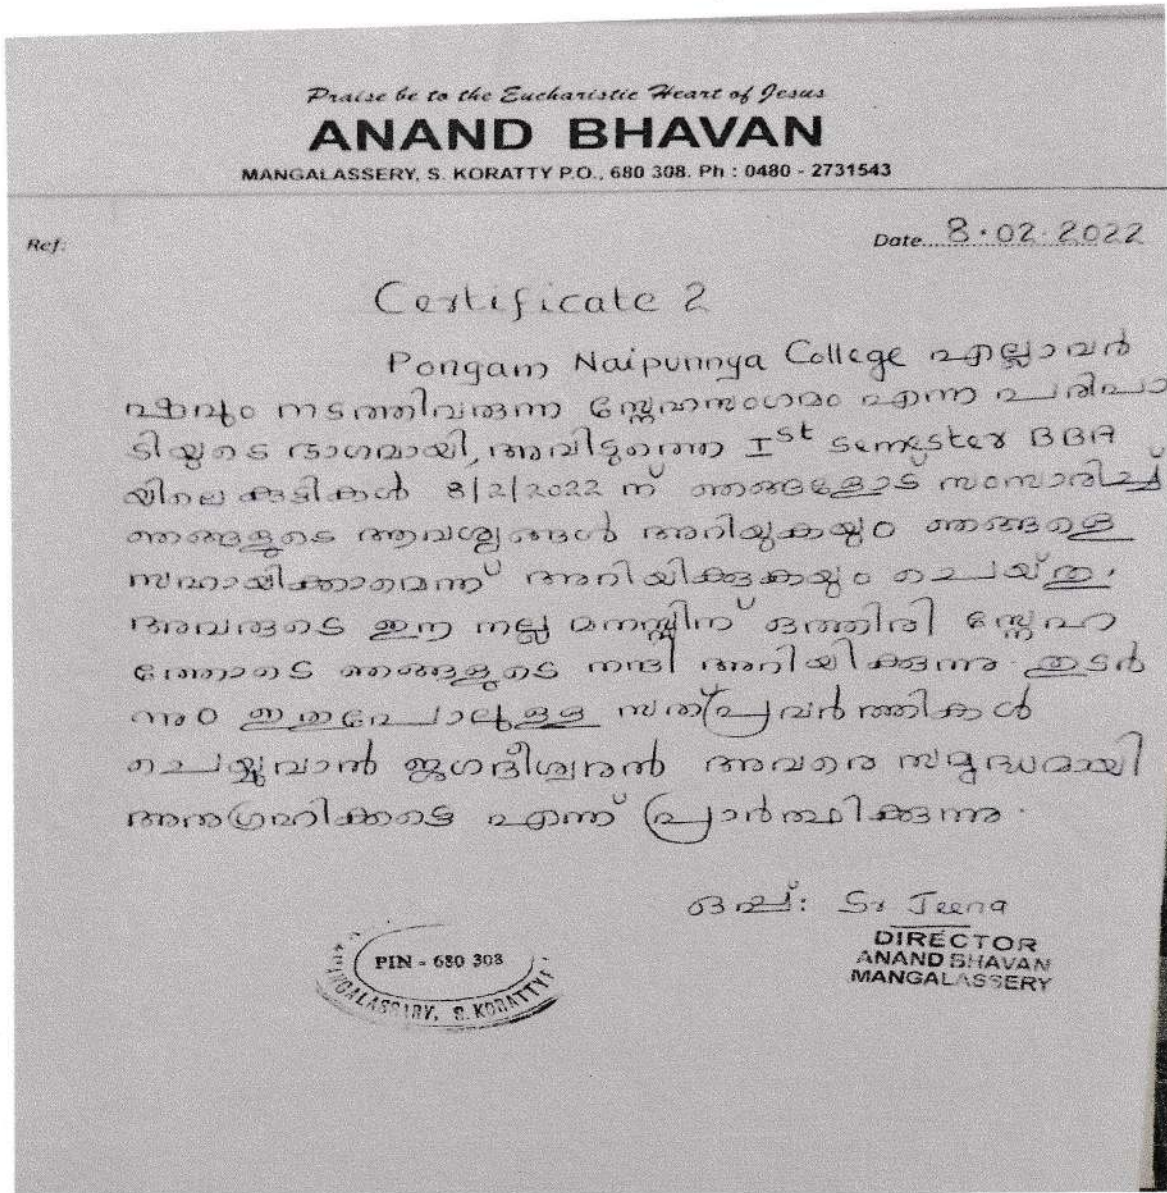 Praise be to the Eucharistic Heart of Jesus
ANAND BHAVAN
MANGALASSERY, S. KORATTY P.O., 680 308. Ph : 0480 - 2731543
Ref:
Date.... 8.02.2022
Certificate 2
Pongam Naipunnya College എല്ലാവർ
ഷവും നടത്തിവരുന്ന സ്നേഹസംഗമം എന്ന പരിപാ
ടിയുടെ ഭാഗമായി, അവിടുത്തെ Ist semester BBA
യിലെ കുട്ടികൾ 8/2/2022 ന് ഞങ്ങളോട് സംസാരിച്ച്
ഞങ്ങളുടെ ആവശ്യങ്ങൾ അറിയുകയും ഞങ്ങളെ
സഹായിക്കാമെന്ന് അറിയിക്കുകയും ചെയ്തു.
അവരുടെ ഈ നല്ല മനസ്സിന് ഒത്തിരി സ്നേഹ
ത്തോടെ ഞങ്ങളുടെ നന്ദി അറിയിക്കുന്നു. തുടർ
ന്നും ഇതുപോലുള്ള സത്പ്രവർത്തികൾ
ചെയ്യുവാൻ ജഗദീശ്വരൻ അവരെ സമൃദ്ധമായി
അനുഗ്രഹിക്കട്ടെ എന്ന് പ്രാർത്ഥിക്കുന്നു.
ഒപ്പ്: Sr Jeena
DIRECTOR
ANAND BHAVAN
MANGALASSERY
PIN - 680 308
MANGALASSARY, S. KORATTY